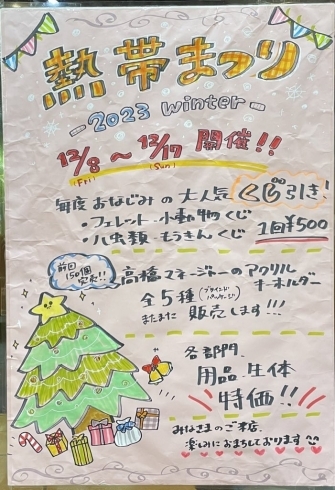 熱帯まつり
-2023 winter-
12/8 ~ 12/17 開催!!
(Fri) (Sun)
毎度おなじみの大人気 くじ引き
・フェレット・小動物くじ
・ハ虫類・もうきんくじ 1回¥500
前回150個完売!!
高橋マネージャーのアクリルキーホルダー
全5種(ブラインドパッケージ)
またまた販売します!!!
各部門、
用品、生体
特価!!
みなさまのご来店、
楽しみにおまちしております